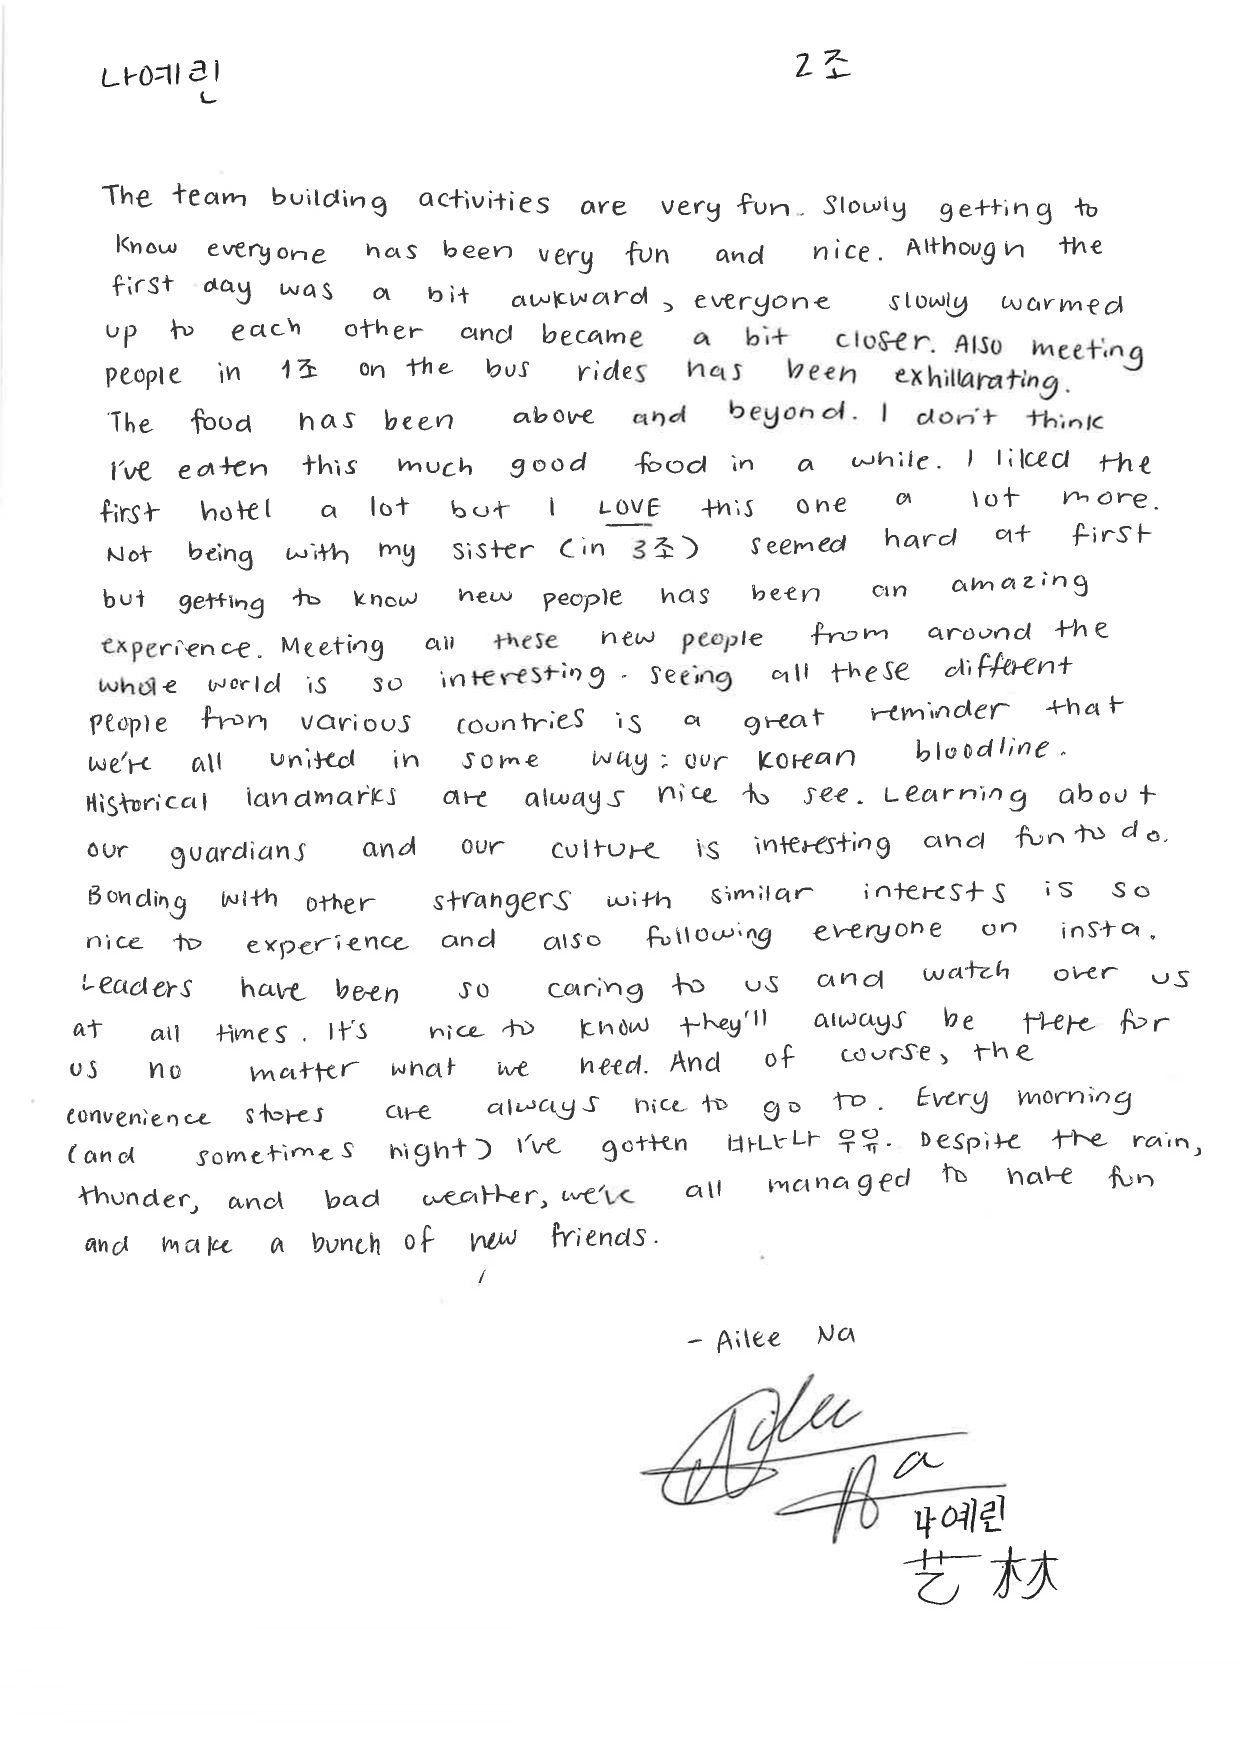 나예린 2조
The team building activities are very fun. Slowly getting to
know everyone has been very fun and nice. Although the
first day was a bit awkward, everyone slowly warmed
up to each other and became a bit closer. Also meeting
people in 1조 on the bus rides has been exhillarating.
The food has been above and beyond. I don't think
I've eaten this much good food in a while. I liked the
first hotel a lot but I LOVE this one a lot more.
Not being with my sister (in 3조) seemed hard at first
but getting to know new people has been an amazing
experience. Meeting all these new people from around the
whole world is so interesting. Seeing all these different
people from various countries is a great reminder that
we're all united in some way: our Korean bloodline.
Historical landmarks are always nice to see. Learning about
our guardians and our culture is interesting and fun to do.
Bonding with other strangers with similar interests is so
nice to experience and also following everyone on insta.
Leaders have been so caring to us and watch over us
at all times. It's nice to know they'll always be there for
us no matter what we need. And of course, the
convenience stores are always nice to go to. Every morning
(and sometimes night) I've gotten 바나나 우유. Despite the rain,
thunder, and bad weather, we've all managed to have fun
and make a bunch of new friends.
- Ailee Na
Ailee
Na
나예린
艺林